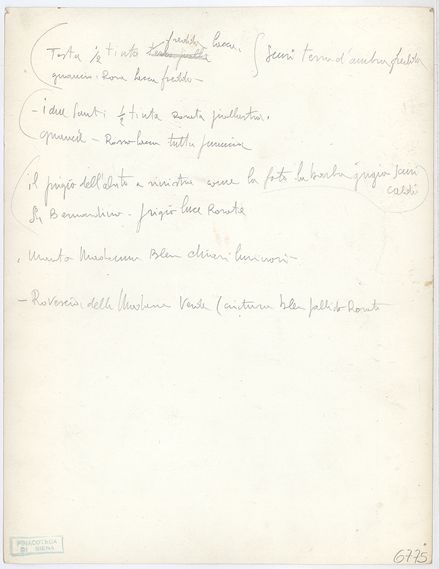 freddo
Testa ½ tinta lacca. Scuri terra d'ombra fredda
guancia: Rosa lacca freddo –
– i due Santi ½ tinta Rosata giallastra.
guancie – Rosso lacca tutta
il grigio dell'abito a sinistra come la foto la barba grigia scuri
caldi
S. Bernardino. grigio luce Rosata
Manto Madonna Bleu chiari luminosi
– Rovescio della Madonna Verde (cintura bleu pallido Rosato
PINACOTECA
DI SIENA
6775